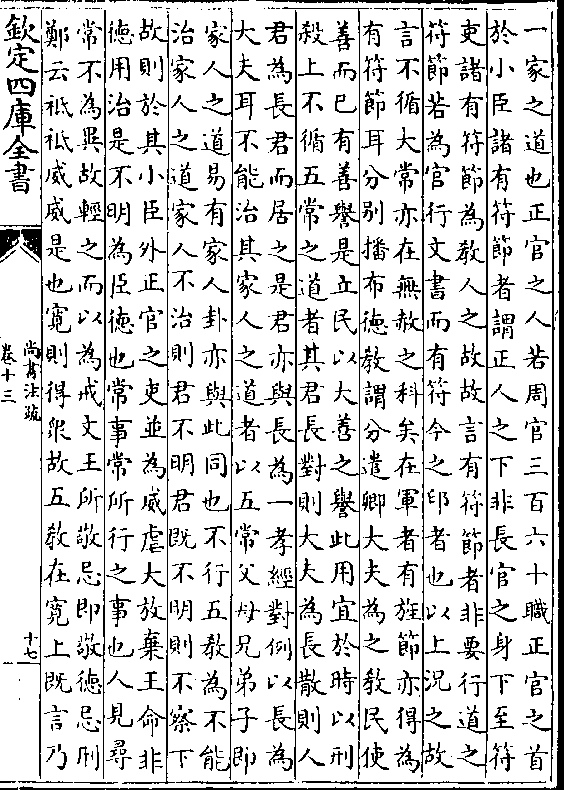 一家之道也正官之人若周官三百六十職正官之首
於小臣諸有符節者謂正人之下非長官之身下至符
吏諸有符節為教人之故故言有符節者非要行道之
符節若為官行文書而有符今之印者也以上況之故
言不循大常亦在無赦之科矣在軍者有旌節亦得為
有符節耳分别播布德教謂分遣卿大夫為之教民使
善而已有善譽是立民以大善之譽此用宜於時以刑
殺上不循五常之道者其君長對則大夫為長散則人
君為長君而居之是君亦與長為一孝經對例以長為
大夫耳不能治其家人之道者以五常父母兄弟子即
家人之道易有家人卦亦與此同也不行五教為不能
治家人之道家人不治則君不明君既不明則不察下
故則於其小臣外正官之吏並為威虐大放棄王命非
德用治是不明為臣德也常事常所行之事也人見尋
常不為異故輕之而以為戒文王所敬忌即敬德忌刑
鄭云祇祇威威是也寛則得衆故五教在寛上既言乃
欽定四庫全書
尚書注疏
卷十三
十七